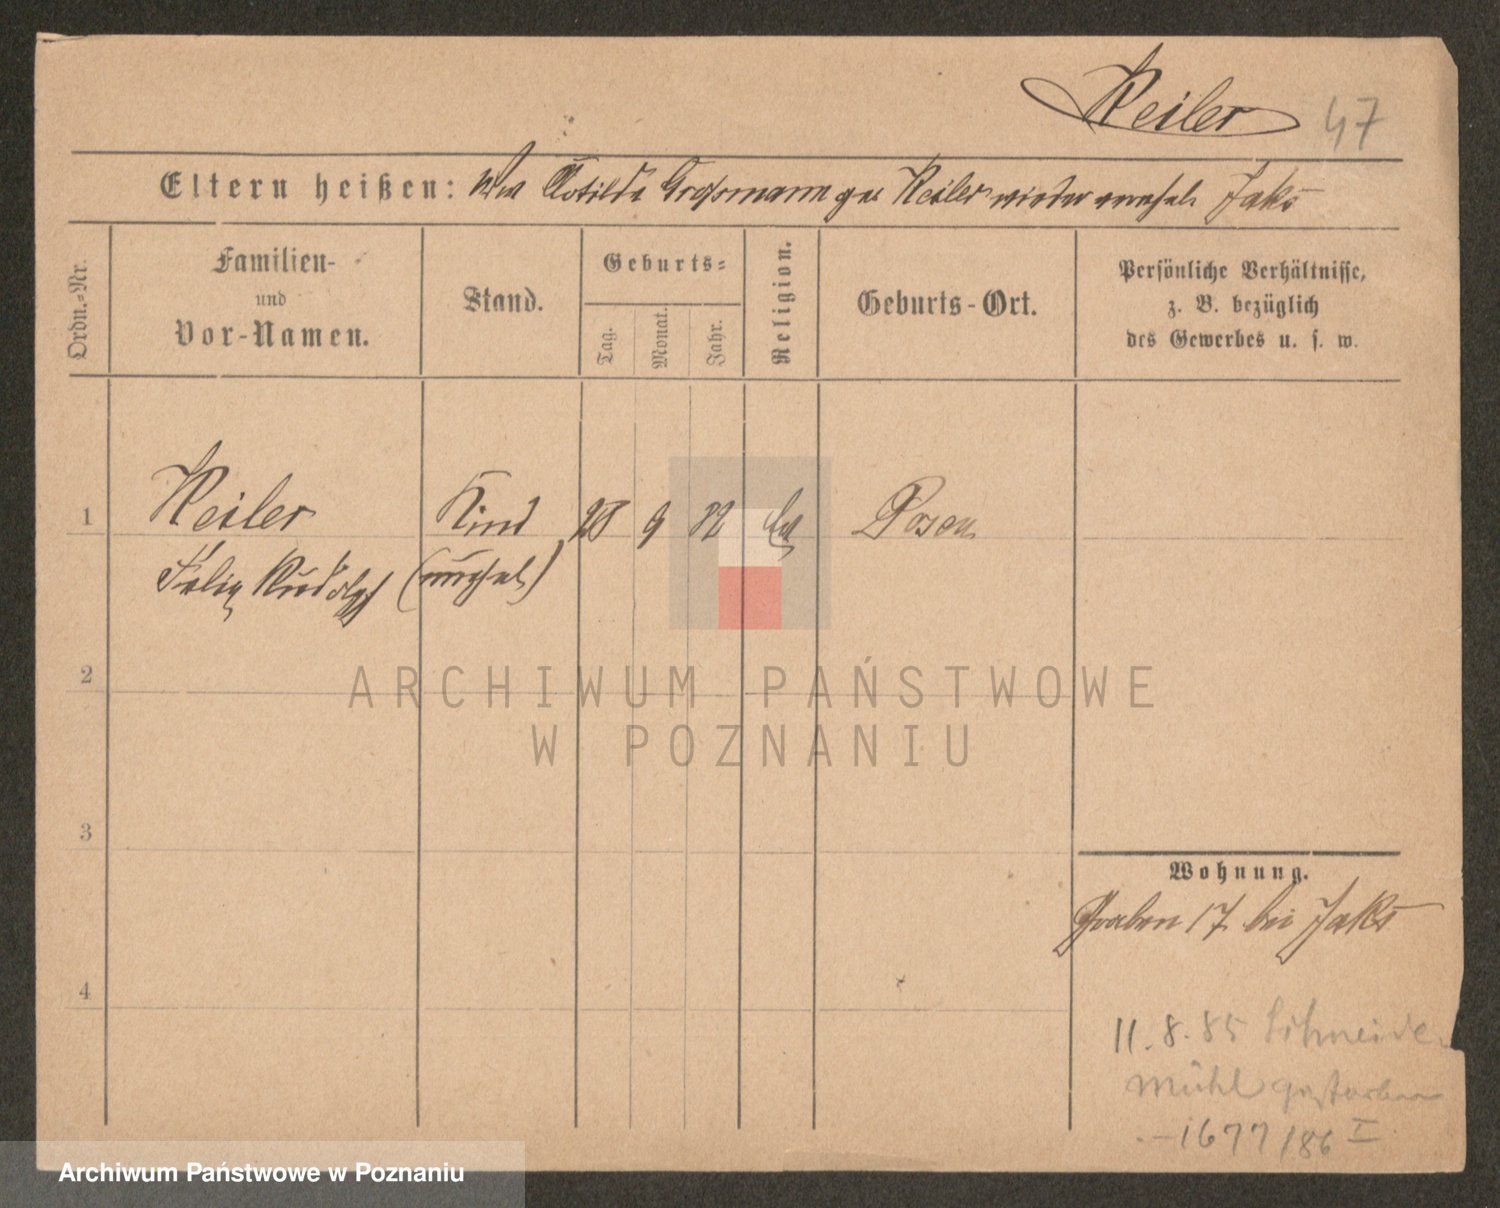 Weiler 47
Eltern heißen: Ww Clotilde Grossmann geb Weiler wieder verehel. Jaks
Ordn.-Nr.
Familien-
und
Vor-Namen.
Stand.
Geburts-
Tag.
Monat.
Jahr.
Religion.
Geburts-Ort.
Persönliche Verhältnisse,
z. B. bezüglich
des Gewerbes u. s. w.
1 Weiler Kind 28 9 82 Posen
Felix Rudolph (unehel.)
2
3
4
Wohnung.
Graben 17 bei Jaks
11.8.85 Schneide
mühl gestorben
-1677/86 I
ARCHIWUM PAŃSTWOWE
W POZNANIU
Archiwum Państwowe w Poznaniu